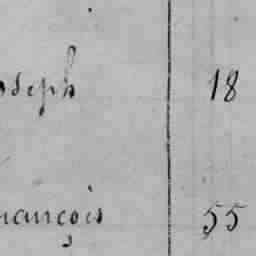 oseph 18
rançois 55